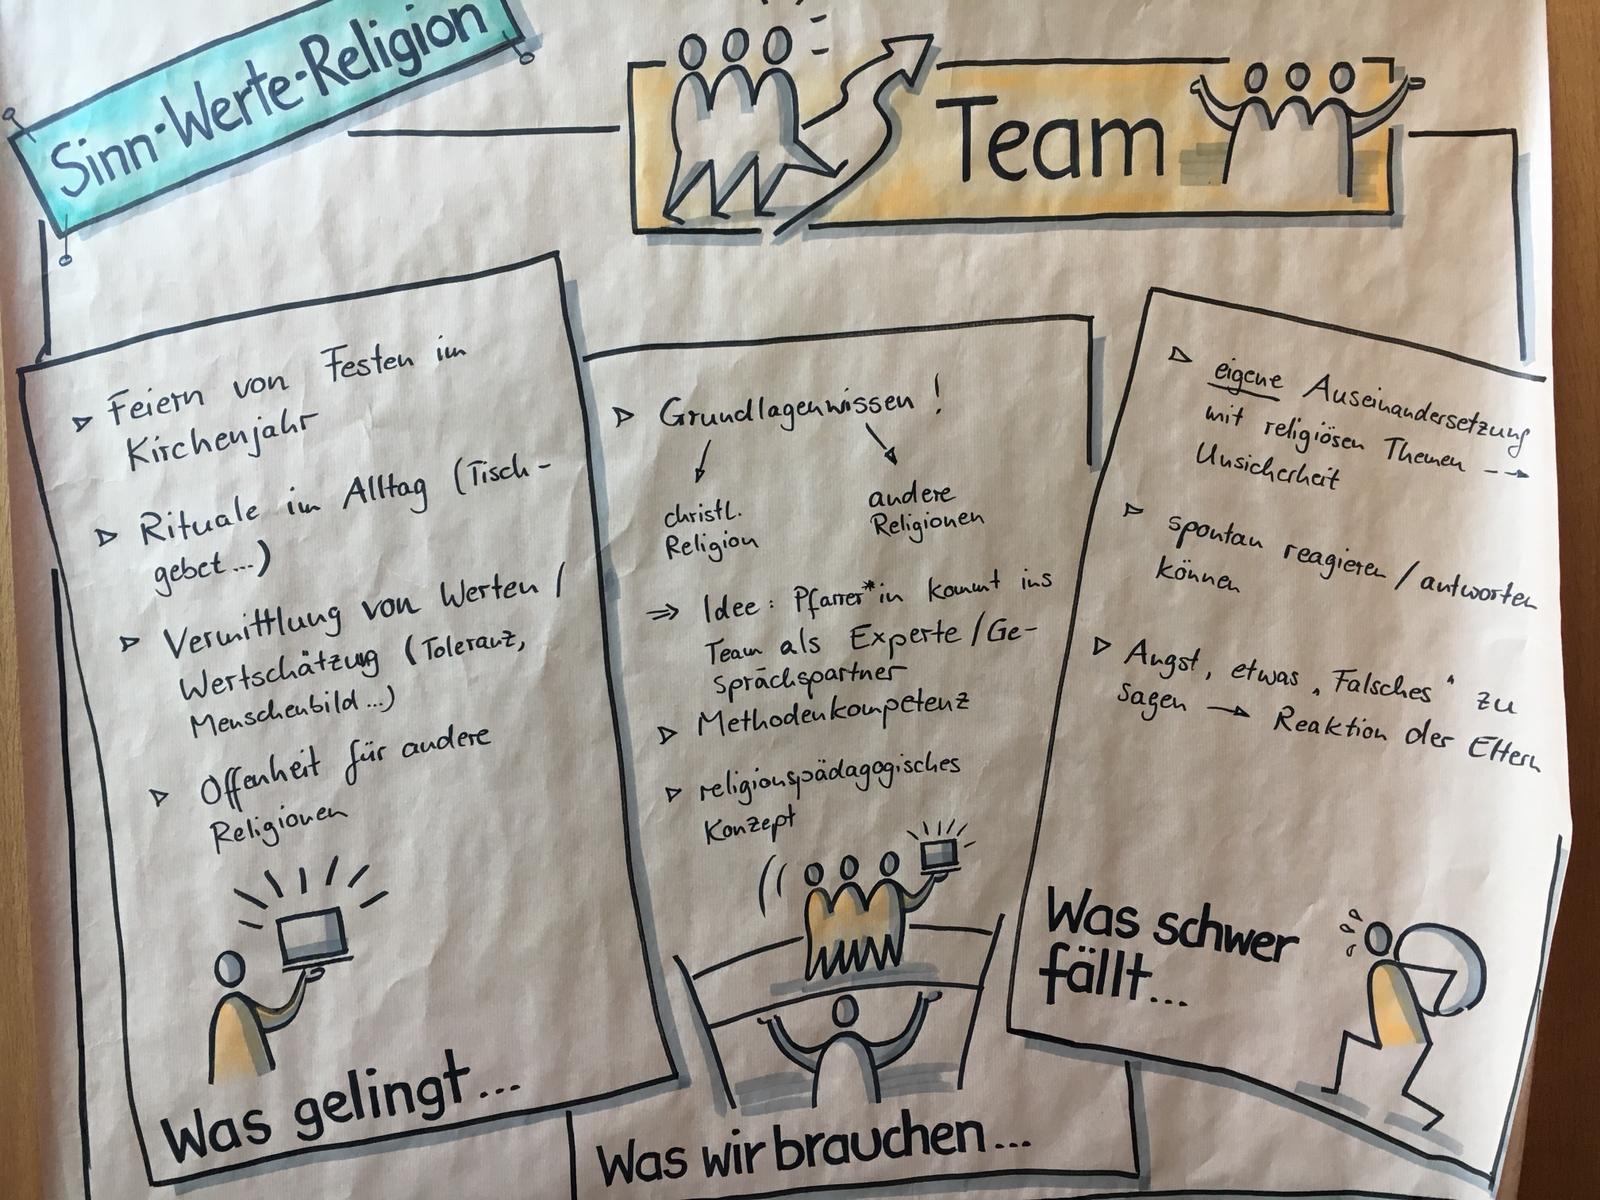 Sinn-Werte-Religion
Team
▷ Feiern von Festen im
Kirchenjahr
▷ Rituale im Alltag (Tisch-
gebet...)
▷ Vermittlung von Werten /
Wertschätzung (Toleranz,
Menschenbild...)
▷ Offenheit für andere
Religionen
Was gelingt...
▷ Grundlagenwissen!
christl.
Religion
andere
Religionen
⇒ Idee: Pfarrer*in kommt ins
Team als Experte/Ge-
sprächspartner
▷ Methodenkompetenz
▷ religionspädagogisches
Konzept
Was wir brauchen...
▷ eigene Auseinandersetzung
mit religiösen Themen -->
Unsicherheit
▷ spontan reagieren / antworten
können
▷ Angst, etwas „Falsches" zu
sagen → Reaktion der Eltern
Was schwer
fällt...